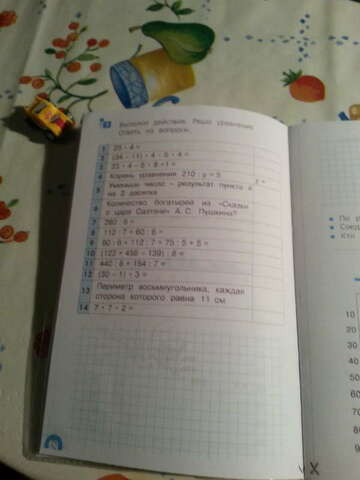 Выполни действия. Реши уравнение.
Ответь на вопросы.
1 25 · 4 =
2 (34 – 11) · 4 – 5 · 4 =
3 23 · 4 – 8 · 8 + 1 =
4 Корень уравнения 210 : x = 5
x =
5 Уменьши число – результат пункта 4
на 2 десятка
6 Количество богатырей из «Сказки
о царе Салтане» А. С. Пушкина?
7 282 : 6 =
8 112 : 7 + 60 : 6 =
9 90 : 6 + 112 : 7 + 75 : 5 + 5 =
10 (123 + 456 – 139) : 8 =
11 440 : 8 + 154 : 7 =
12 (30 – 1) · 3 =
13 Периметр восьмиугольника, каждая
сторона которого равна 11 см
14 7 · 7 · 2 =
По р
След
Кто
10
20
30
40
50
60
70
80